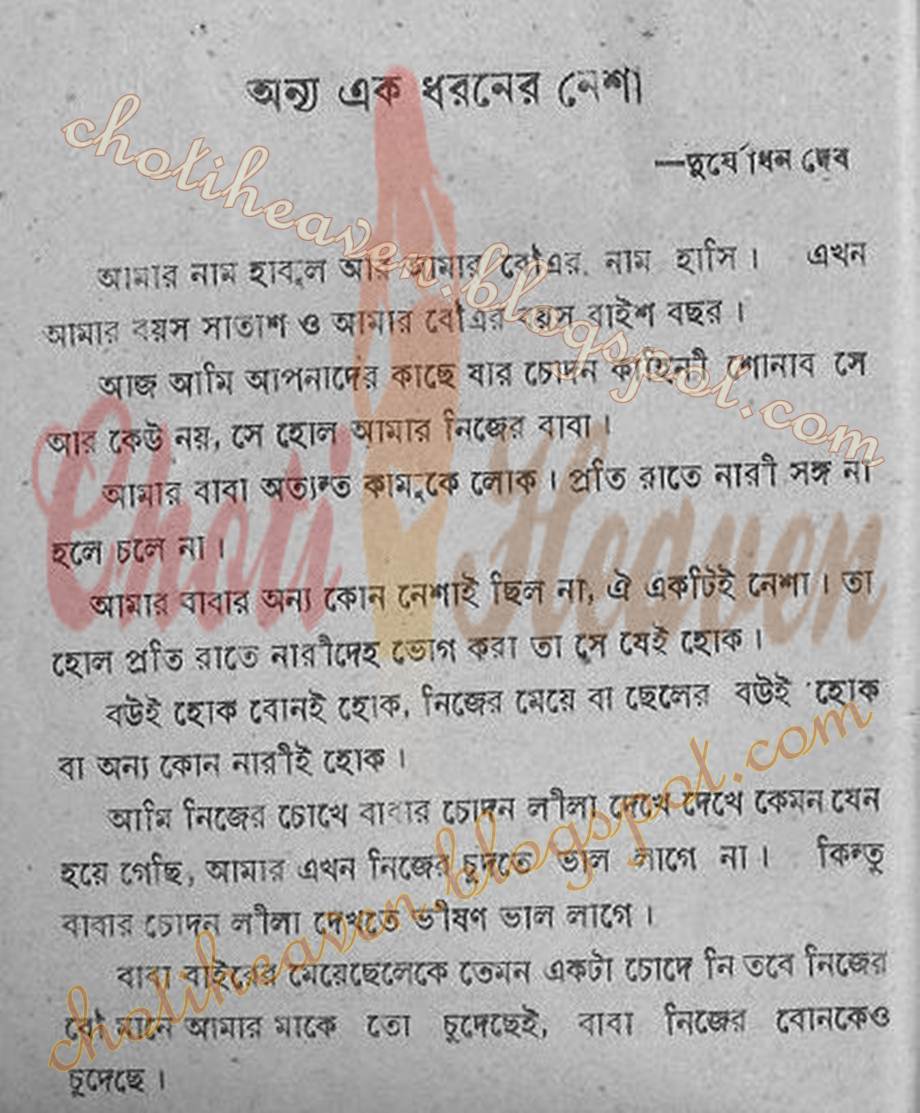 অন্য এক ধরনের নেশা
—দুর্যোধন দেব
আমার নাম হাবুল আর আমার বৌএর নাম হাসি। এখন
আমার বয়স সাতাশ ও আমার বৌএর বয়স বাইশ বছর।
আজ আমি আপনাদের কাছে যার চোদন কাহিনী শোনাব সে
আর কেউ নয়, সে হোল আমার নিজের বাবা।
আমার বাবা অত্যন্ত কামুকে লোক। প্রতি রাতে নারী সঙ্গ না
হলে চলে না।
আমার বাবার অন্য কোন নেশাই ছিল না, ঐ একটিই নেশা। তা
হোল প্রতি রাতে নারীদেহ ভোগ করা তা সে যেই হোক।
বউই হোক বোনই হোক, নিজের মেয়ে বা ছেলের বউই হোক
বা অন্য কোন নারীই হোক।
আমি নিজের চোখে বাবার চোদন লীলা দেখে দেখে কেমন যেন
হয়ে গেছি, আমার এখন নিজের চুদতে ভাল লাগে না। কিন্তু
বাবার চোদন লীলা দেখতে ভীষণ ভাল লাগে।
বাবা বাইরের মেয়েছেলেকে তেমন একটা চোদে নি তবে নিজের
বৌ মানে আমার মাকে তো চুদেছেই, বাবা নিজের বোনকেও
চুদেছে।
chotiheaven.blogspot.com
Choti Heaven
chotiheaven.blogspot.com